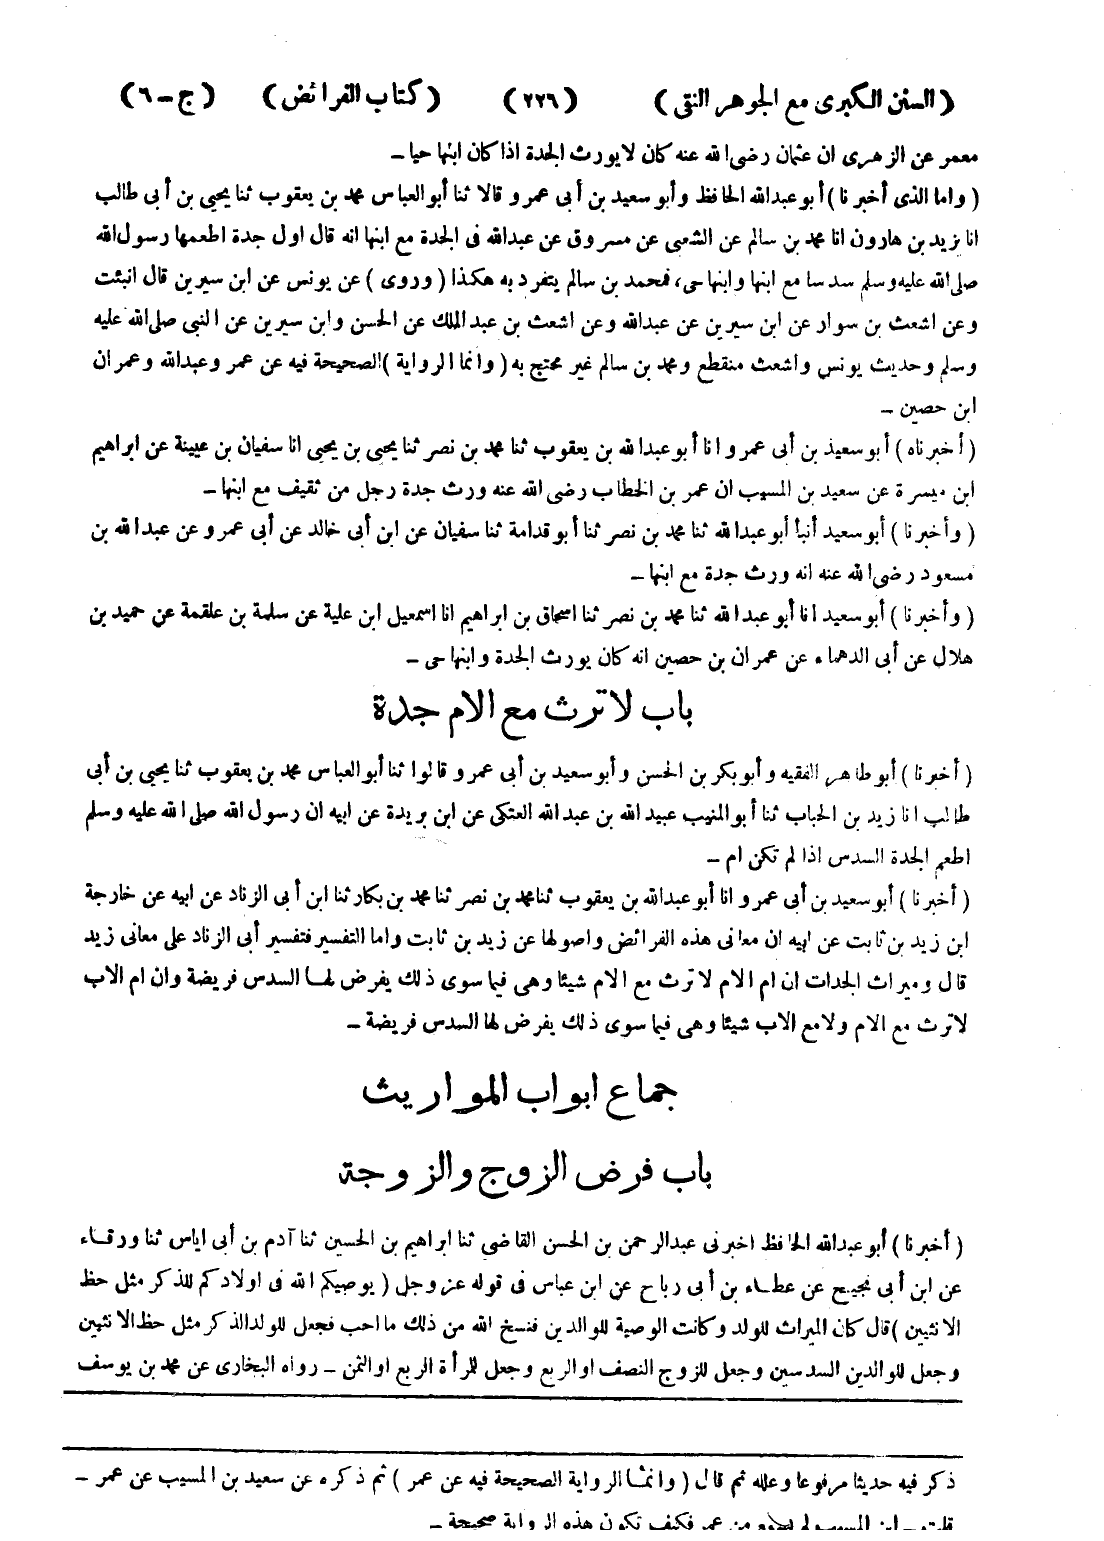 ( السنن الكبرى مع الجوهر النقى ) (٢٢٦) ( كتاب الفرائض ) ( ج – ٦ )
معمر عن الزهرى ان عثمان رضى الله عنه كان لا يورث الجدة اذا كان ابنها حيا –
( واما الذى أخبرنا ) أبو عبدالله الحافظ وأبو سعيد بن أبى عمرو قالا ثنا أبو العباس محمد بن يعقوب ثنا يحيى بن أبى طالب
انا يزيد بن هارون انا محمد بن سالم عن الشعبى عن مسروق عن عبدالله فى الجدة مع ابنها انه قال اول جدة اطعمها رسول الله
صلى الله عليه وسلم سدسا مع ابنها وابنها حى، فمحمد بن سالم يتفرد به هكذا ( وروى ) عن يونس عن ابن سيرين قال انبئت
وعن اشعث بن سوار عن ابن سيرين عن عبدالله وعن اشعث بن عبد الملك عن الحسن وابن سيرين عن النبى صلى الله عليه
وسلم وحديث يونس واشعث منقطع ومحمد بن سالم غير محتج به ( وانما الرواية ) الصحيحة فيه عن عمر وعبدالله وعمران
ابن حصين –
( أخبرناه ) أبو سعيد بن أبى عمرو انا أبو عبدالله بن يعقوب ثنا محمد بن نصر ثنا يحيى بن يحيى انا سفيان بن عيينة عن ابراهيم
ابن ميسرة عن سعيد بن المسيب ان عمر بن الخطاب رضى الله عنه ورث جدة رجل من ثقيف مع ابنها –
( وأخبرنا ) أبو سعيد أنبأ أبو عبدالله ثنا محمد بن نصر ثنا أبو قدامة ثنا سفيان عن ابن أبى خالد عن أبى عمرو عن عبدالله بن
مسعود رضى الله عنه انه ورث جدة مع ابنها –
( وأخبرنا ) أبو سعيد انا أبو عبدالله ثنا محمد بن نصر ثنا اسحاق بن ابراهيم انا اسمعيل ابن علية عن سلمة بن علقمة عن حميد بن
هلال عن أبى الدهماء عن عمران بن حصين انه كان يورث الجدة وابنها حى –
باب لا ترث مع الام جدة
( أخبرنا ) أبو طاهر الفقيه وأبو بكر بن الحسن وأبو سعيد بن أبى عمرو قالوا ثنا أبو العباس محمد بن يعقوب ثنا يحيى بن أبى
طالب انا زيد بن الحباب ثنا أبو المنيب عبيد الله بن عبد الله العتكى عن ابن بريدة عن ابيه ان رسول الله صلى الله عليه وسلم
اطعم الجدة السدس اذا لم تكن ام –
( أخبرنا ) أبو سعيد بن أبى عمرو انا أبو عبدالله بن يعقوب ثنا محمد بن نصر ثنا محمد بن بكار ثنا ابن أبى الزناد عن ابيه عن خارجة
ابن زيد بن ثابت عن ابيه ان معانى هذه الفرائض واصولها عن زيد بن ثابت واما التفسير فتفسير أبى الزناد على معانى زيد
قال وميراث الجدات ان ام الام لا ترث مع الام شيئا وهى فيما سوى ذلك يفرض لها السدس فريضة وان ام الاب
لا ترث مع الام ولا مع الاب شيئا وهى فيما سوى ذلك يفرض لها السدس فريضة –
جماع ابواب المواريث
باب فرض الزوج والزوجة
( أخبرنا ) أبو عبدالله الحافظ اخبرنى عبدالرحمن بن الحسن القاضى ثنا ابراهيم بن الحسين ثنا آدم بن أبى اياس ثنا ورقاء
عن ابن أبى نجيح عن عطاء بن أبى رباح عن ابن عباس فى قوله عز وجل ( يوصيكم الله فى اولادكم للذكر مثل حظ
الانثيين ) قال كان الميراث للولد وكانت الوصية للوالدين فنسخ الله من ذلك ما احب فجعل للولد الذكر مثل حظ الانثيين
وجعل للوالدين السدسين وجعل للزوج النصف او الربع وجعل للمرأة الربع او الثمن – رواه البخارى عن محمد بن يوسف
ذكر فيه حديثا مرفوعا وعلله ثم قال ( وانما الرواية الصحيحة فيه عن عمر ) ثم ذكره عن سعيد بن المسيب عن عمر –
قلت – ابن المسيب لم يسمع من عمر فكيف تكون هذه الرواية صحيحة –